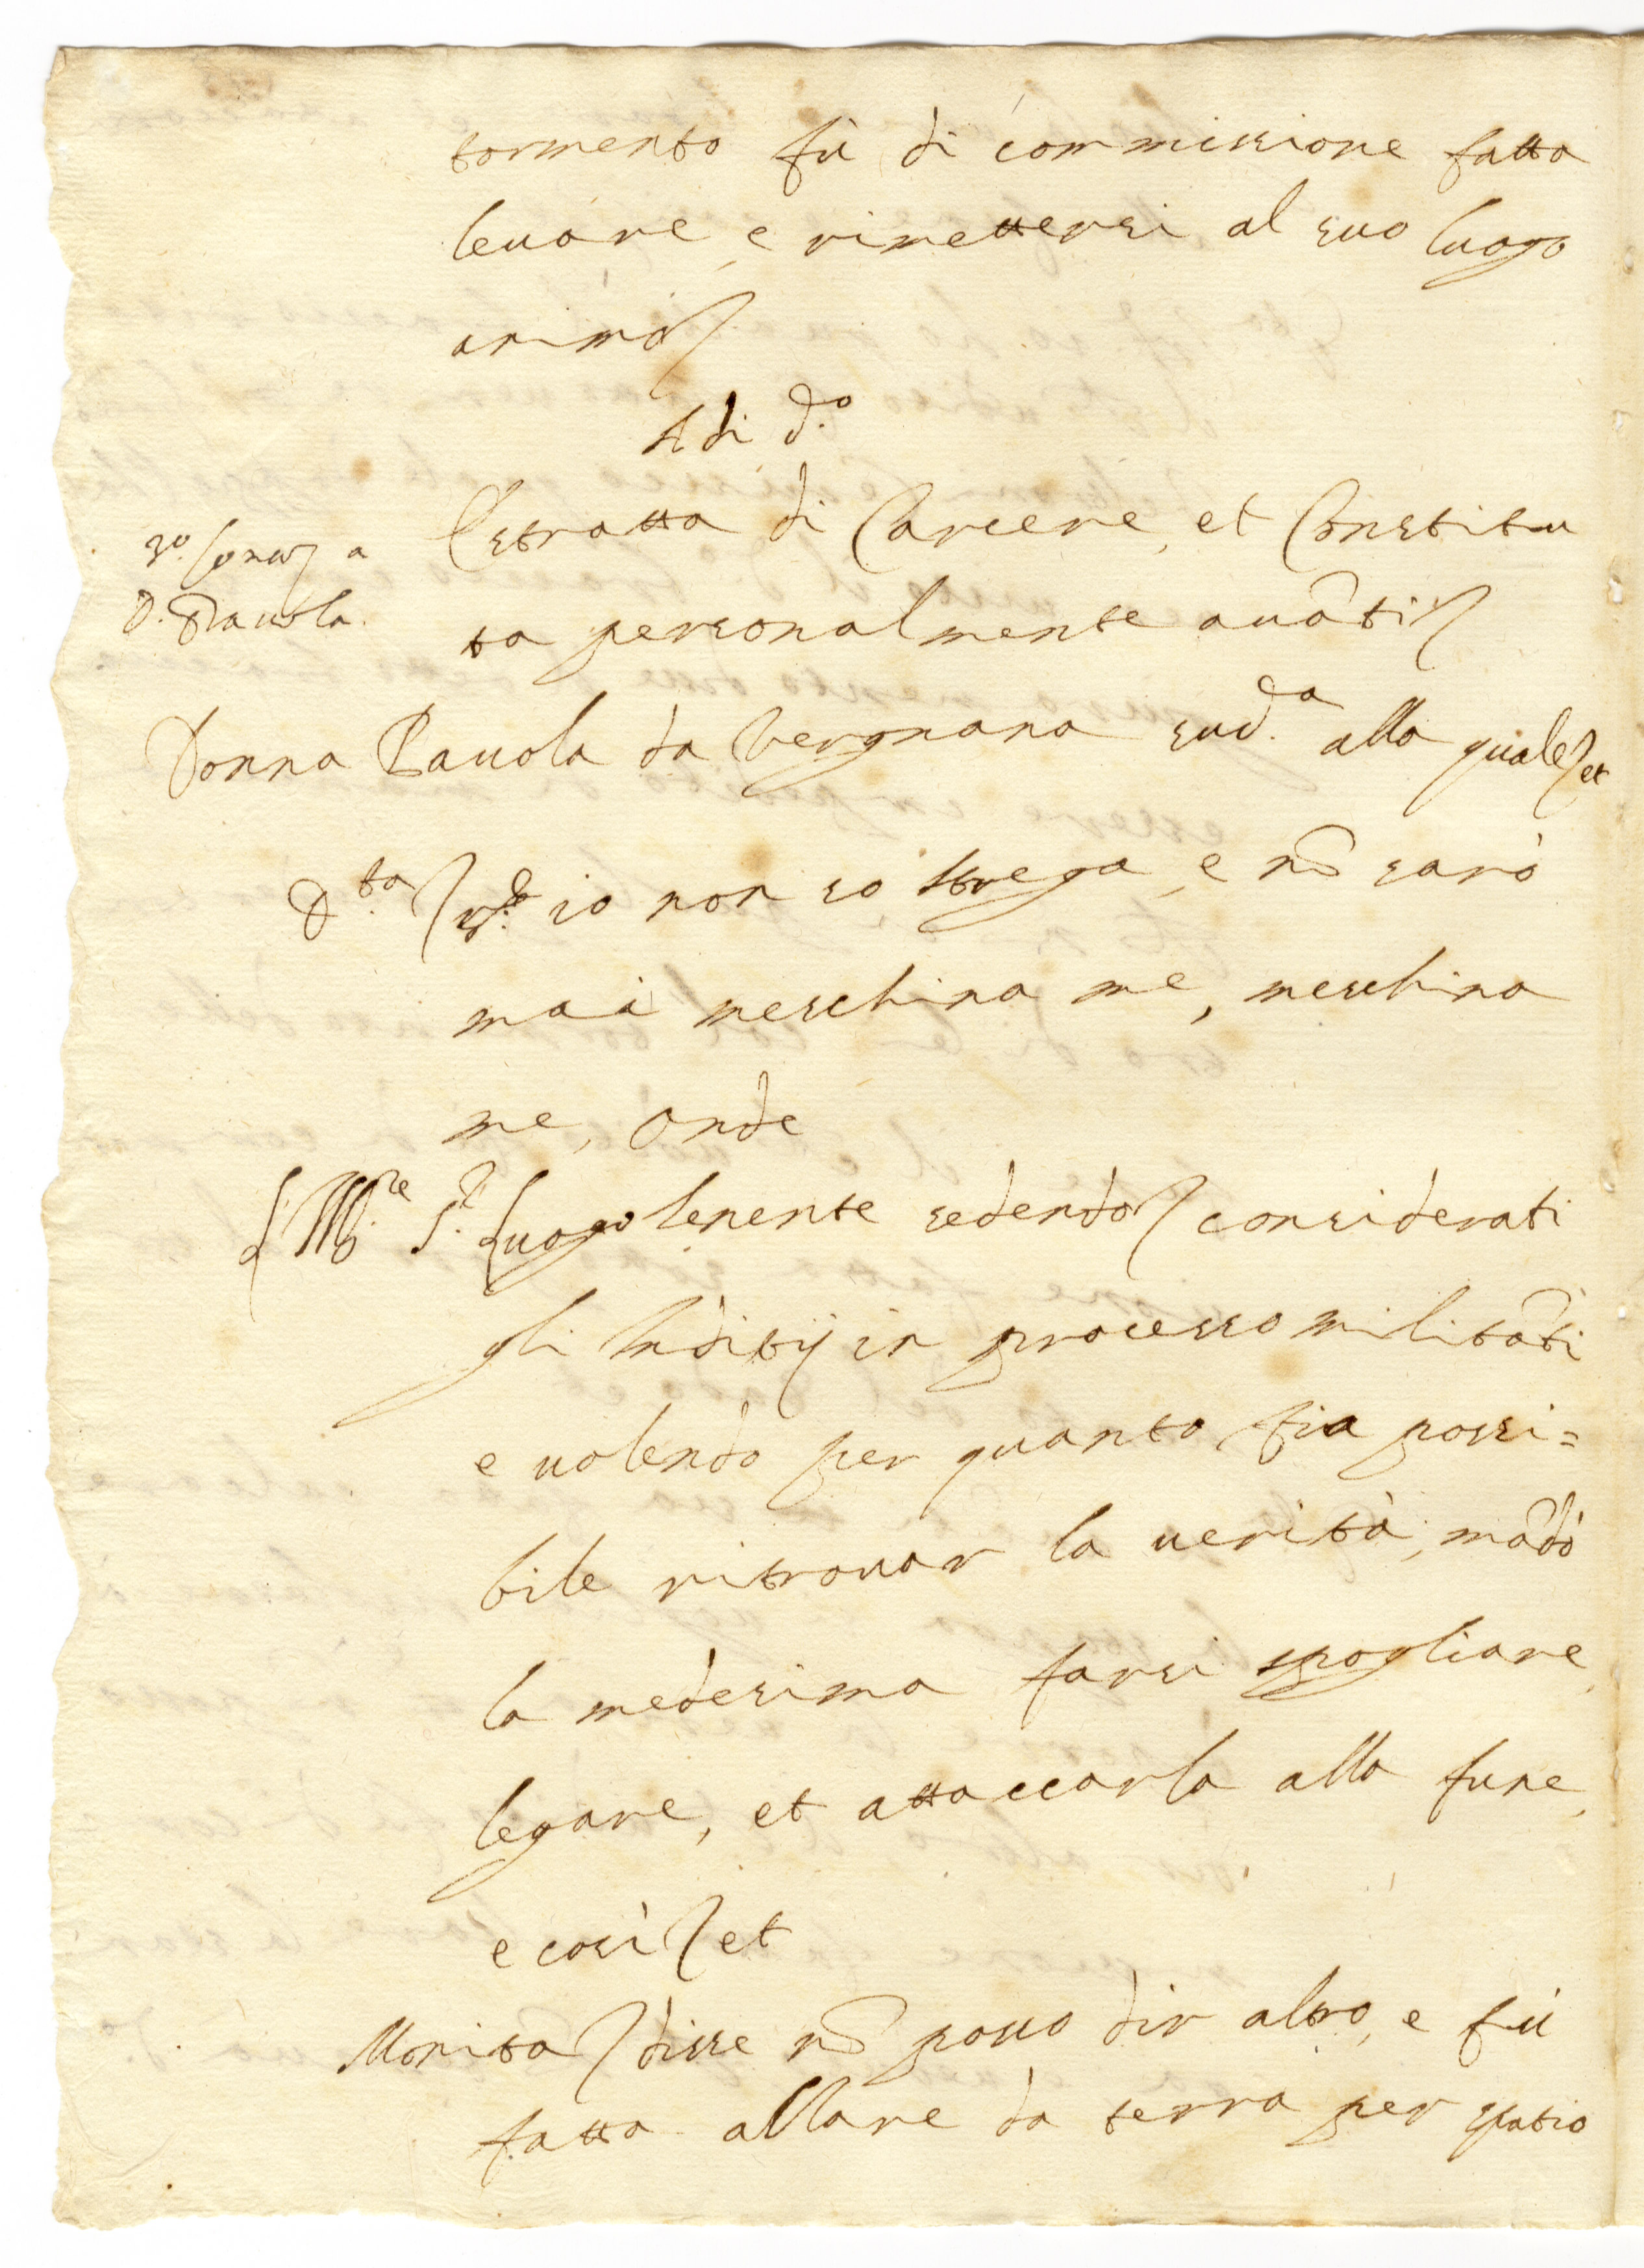 tormento fù di commissione fatta
leuare, e rimettersi al suo luogo
animo
Adi d.º
Estratta di Carcere, et Constitu
3º
a
D. Pauola.
ta personalmente auãti
Donna Pauola da Vergnana sud.ª alla quale et
D.ta io non so strega, e nõ sarò
mai meschina me, meschina
me, onde
L'Ill.re S.r Luogotenente sedendo considerati
gli Inditij in processo militãti
e uolendo per quanto fia possi=
bile ritrouar la uerità, mãdò
la medesima farsi spogliare,
legare, et attaccarla alla fune,
e cosi et
Monita disse nõ posso dir altro, e fù
fatta alzare da terra per spatio